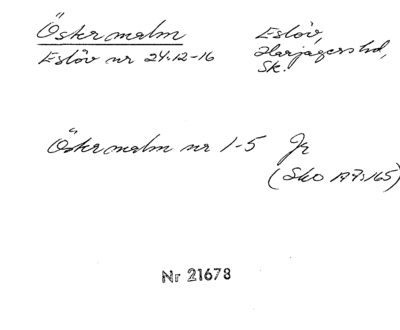 Östermalm
Eslöv nr 24:12-16
Eslöv,
Harjagers hd,
Sk.
Östermalm nr 1-5 Jr
(Sko A7:165)
Nr 21673